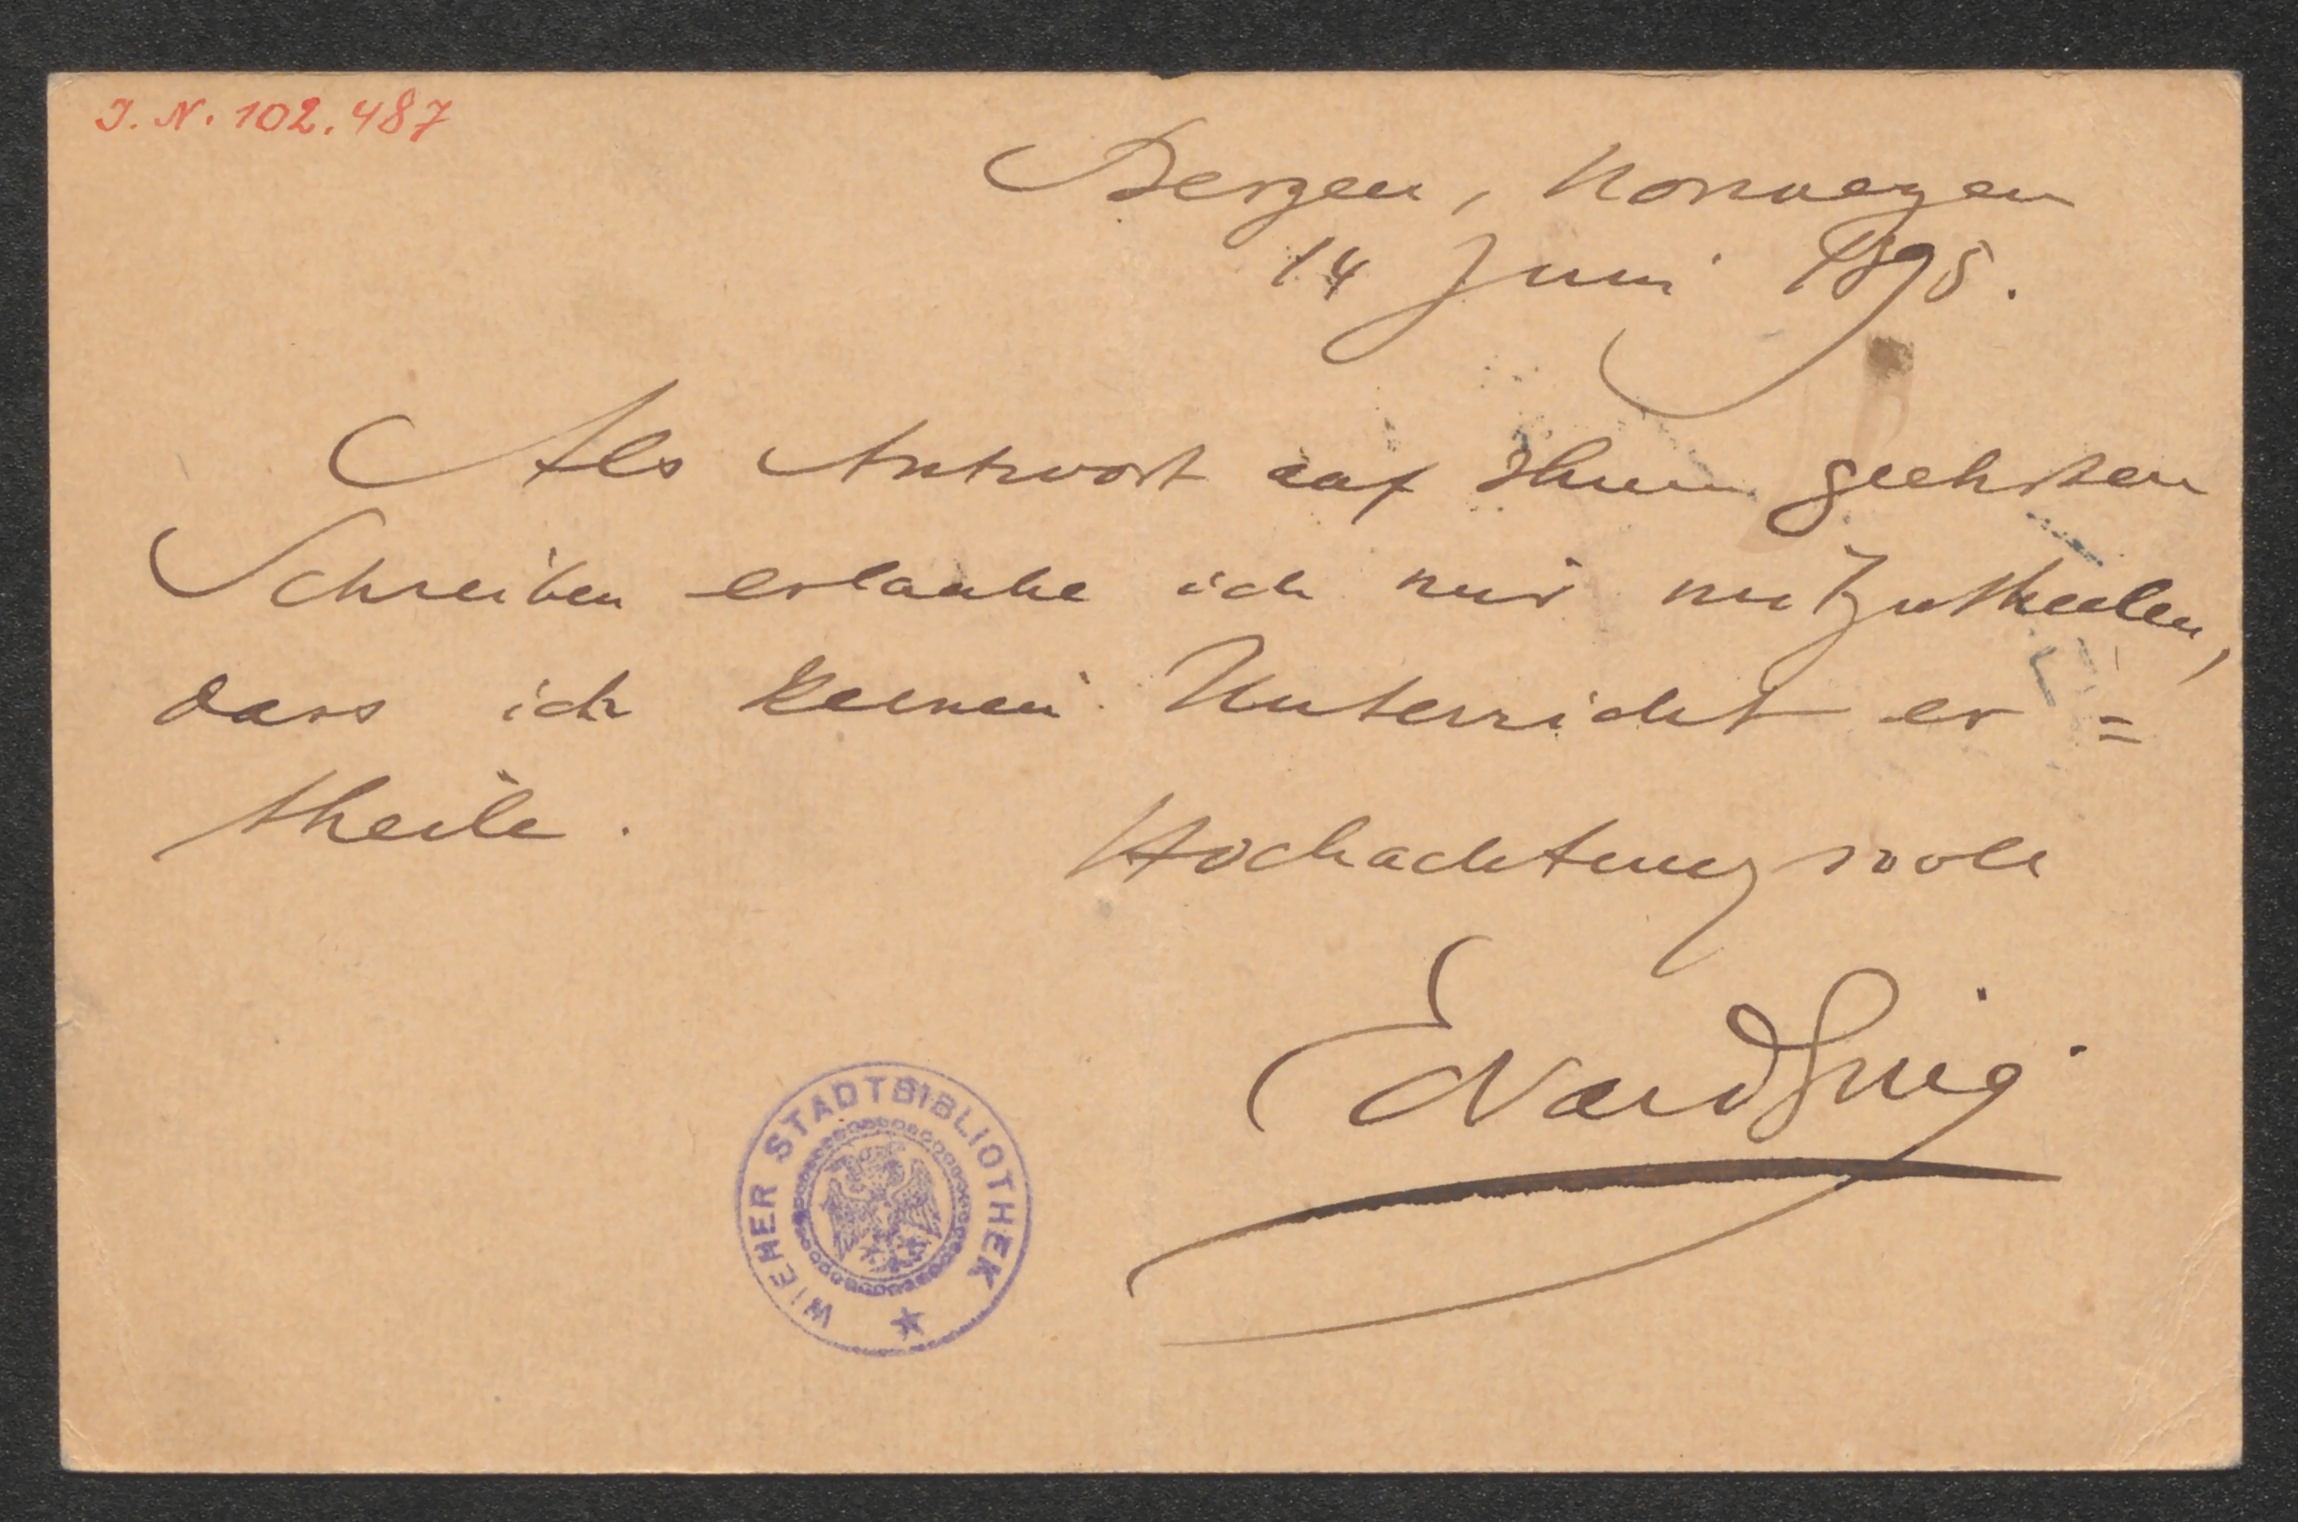 J. N. 102.487
Bergen, Norwegen
14 Juni 1895.
Als Antwort auf Ihrem geehrten
Schreiben erlaube ich mir mitzutheilen,
dass ich keinen Unterricht er=
theile.
Hochachtungsvoll
Edvard Grieg
WIENER STADTBIBLIOTHEK